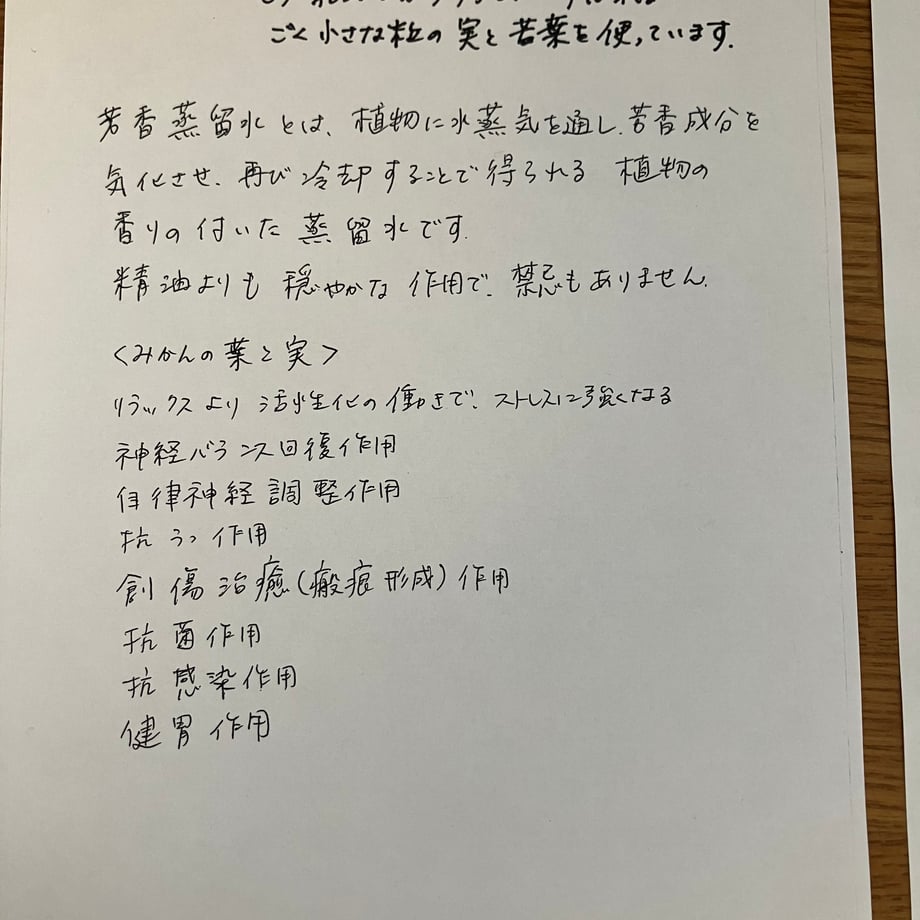 ごく小さな粒の実と若葉を使っています.
芳香蒸留水とは、植物に水蒸気を通し、芳香成分を
気化させ、再び冷却することで得られる 植物の
香りの付いた蒸留水です.
精油よりも穏やかな作用で、禁忌もありません.
<みかんの葉と実>
リラックスより活性化の働きで、ストレスに強くなる
神経バランス回復作用
自律神経調整作用
抗うつ作用
創傷治癒(瘢痕形成)作用
抗菌作用
抗感染作用
健胃作用